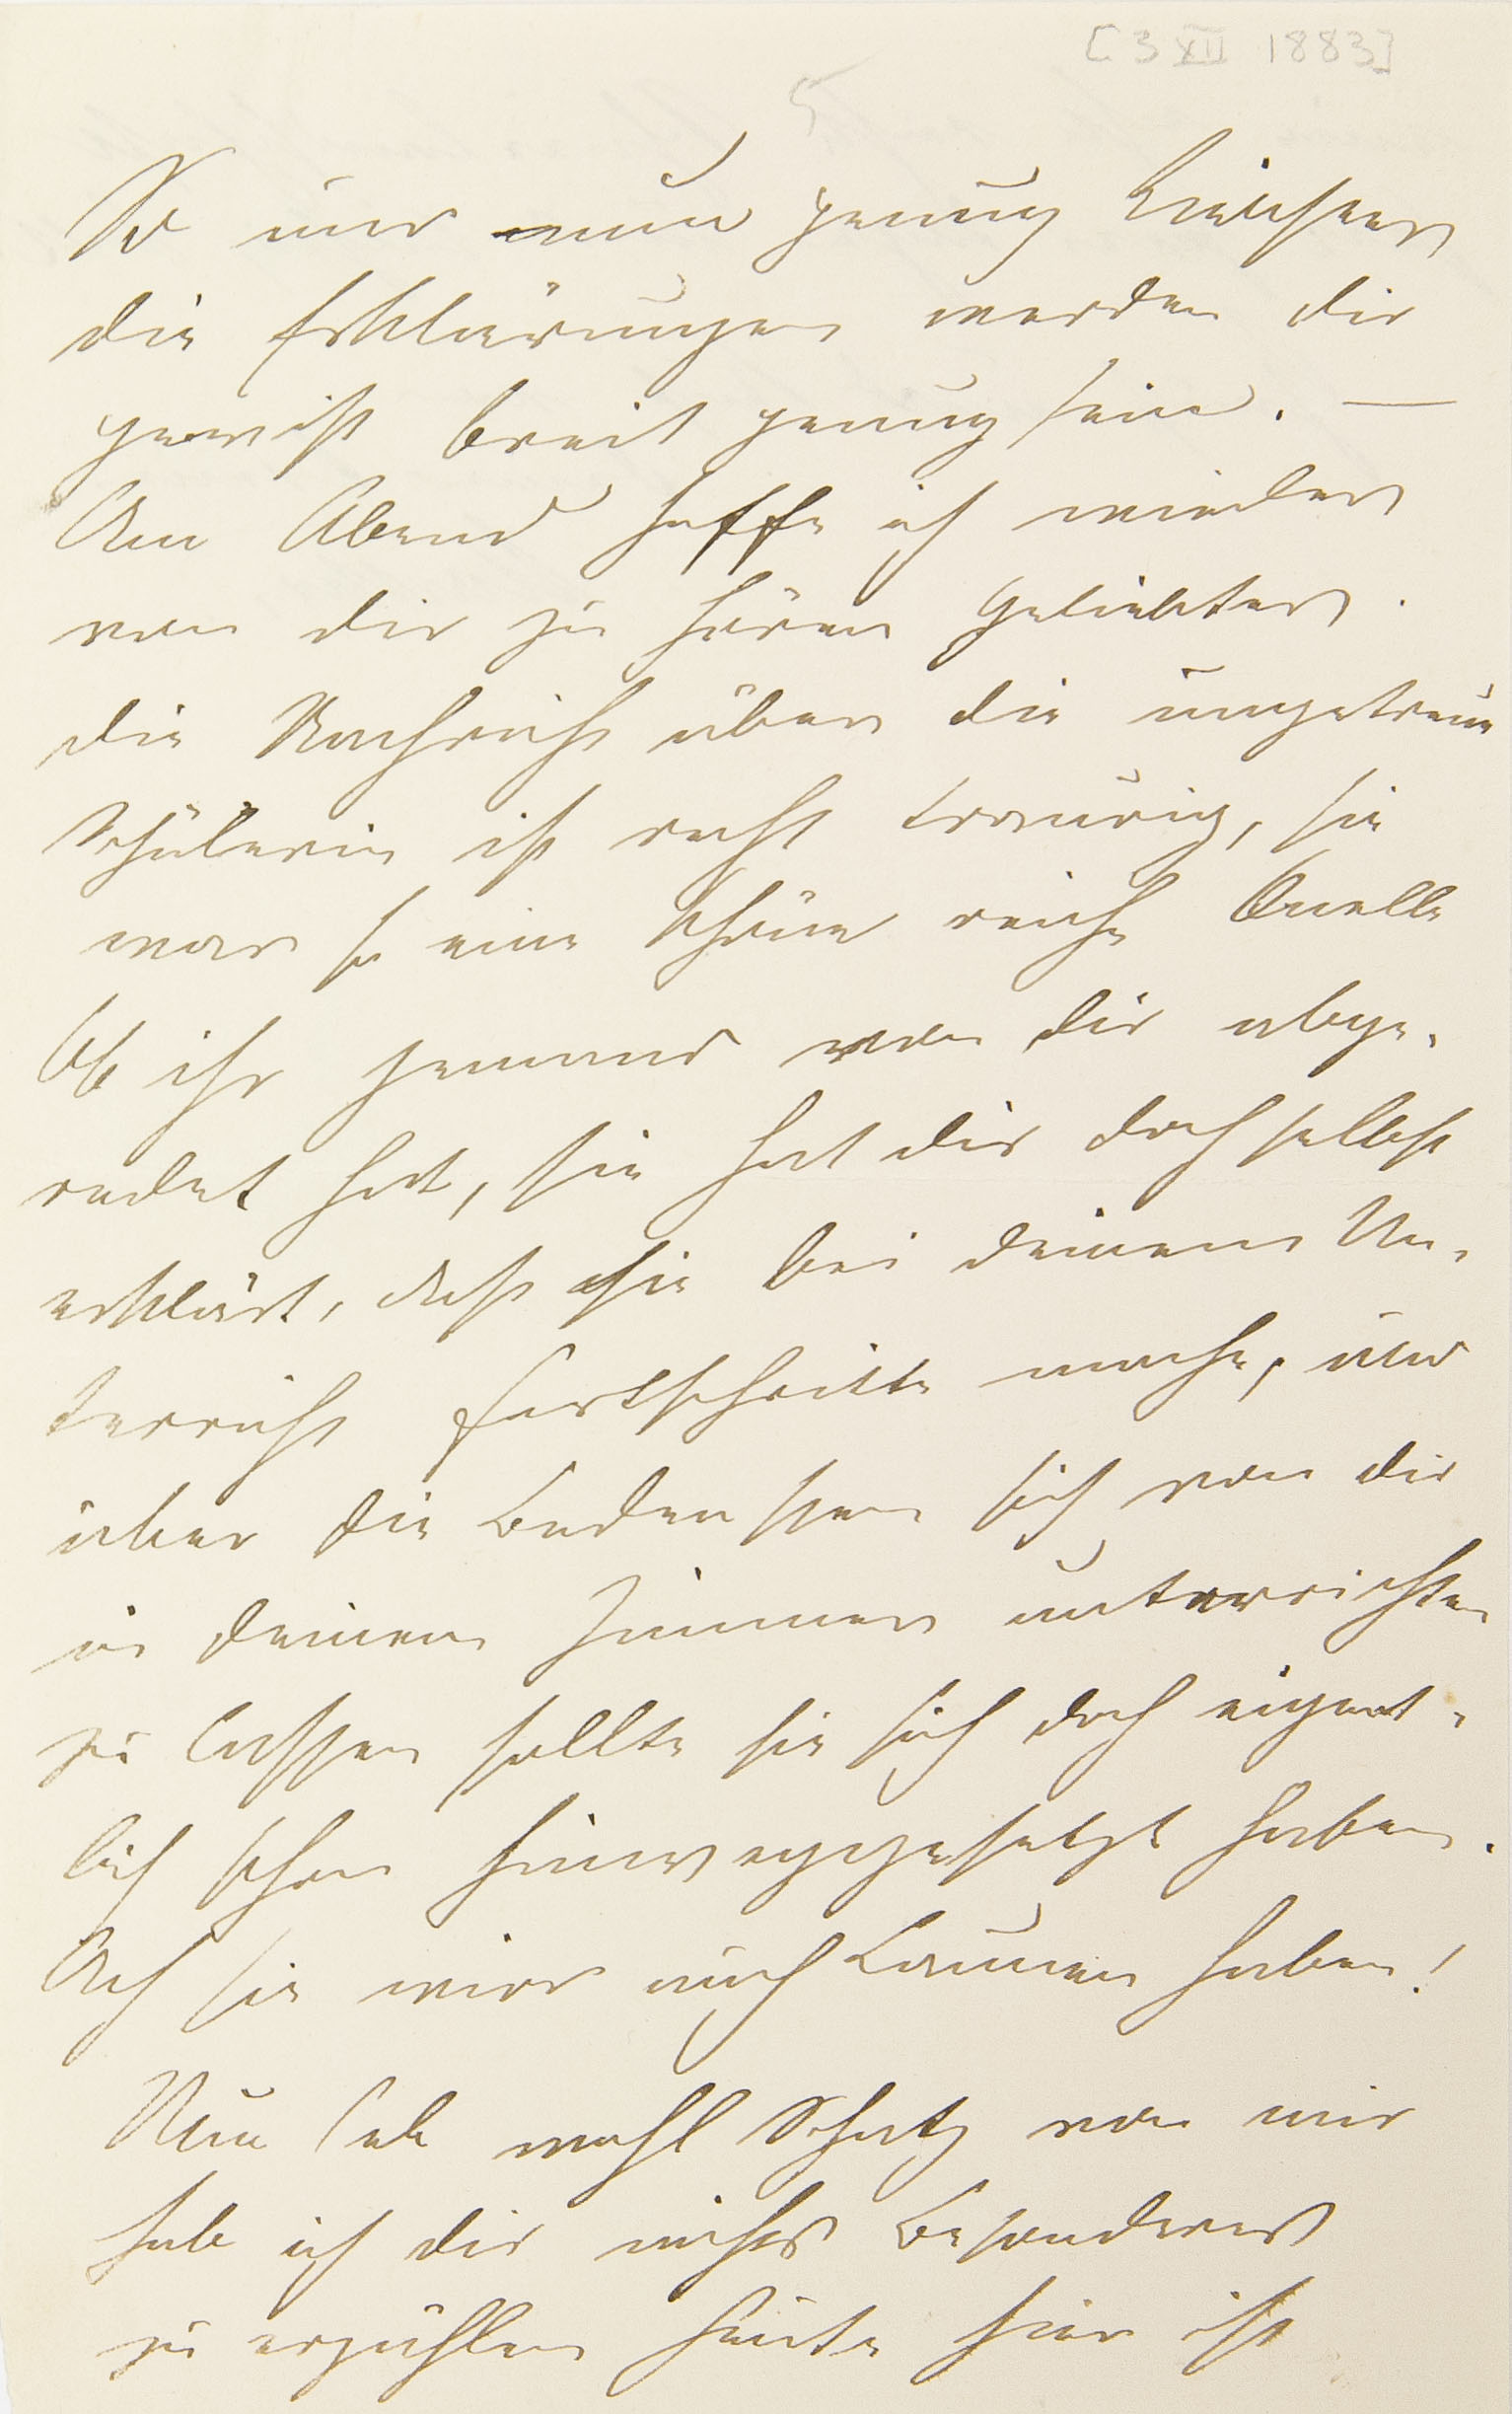 [3 XII 1883]
5
So und nun genug Liebster
die Erklärungen werden dir
gewiß breit genug sein. —
Am Abend hoffe ich wieder
von dir zu hören Geliebter.
die Nachricht über die ungetreue
Schülerin ist recht traurig, sie
war so eine schöne reiche Quelle
Ob ihr jemand von dir abge-
redet hat, sie hat dir doch selbst
erklärt, daß sie bei deinem Un-
terricht Fortschritte mache, und
über die Bedenken sich von dir
in deinem Zimmer unterrichten
zu lassen sollte sie sich doch eigent-
lich schon hinweggesetzt haben.
Ach sie wird auch Launen haben!
Nun leb wohl Schatz von mir
hab ich dir nichts Besonderes
zu erzählen heute hier ist